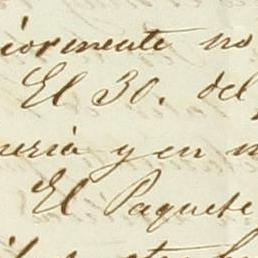 iormente no
El 30. del
neria y en
El Paquete